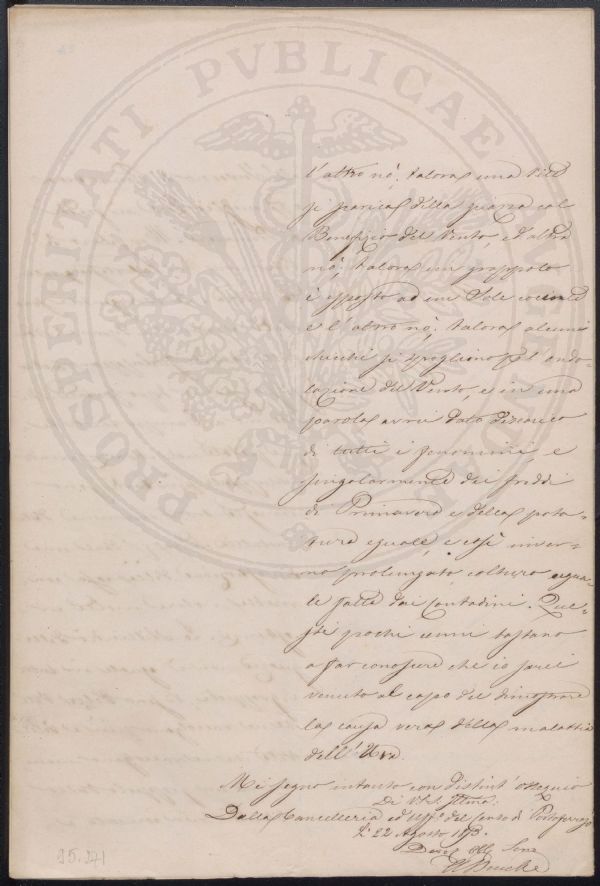 PROSPERITATI PVBLICAE AVGENDAE
l'altro nò; talora una vite
si scarica della guazza col
Benefizio del Vento, e l'altra
nò; talora un grappolo
è esposto ad un Sole cocente
e l'altro nò; talora alcuni
si spogliono p l'ondo-
lazione del Vento, e in una
parola avrei dato discarico
di tutti i fenomini, e
singolarmente dei freddi
di Primavera e della pota-
tura eguale, e così inver-
no prolungato, colture egua-
le fatte dai Contadini. Que-
sti pochi cenni bastano
a far conoscere che io sarei
venuto al capo del dimostrare
la causa vera della malattia
dell'Uva.
Mi segno intanto con distint'ossequio
Di V.S. Illma
Dalla Cancelleria ed Uff.o del Censo di Portoferrajo
Li 22 Agosto 1853.
Dev. Obb. Serv
95.271